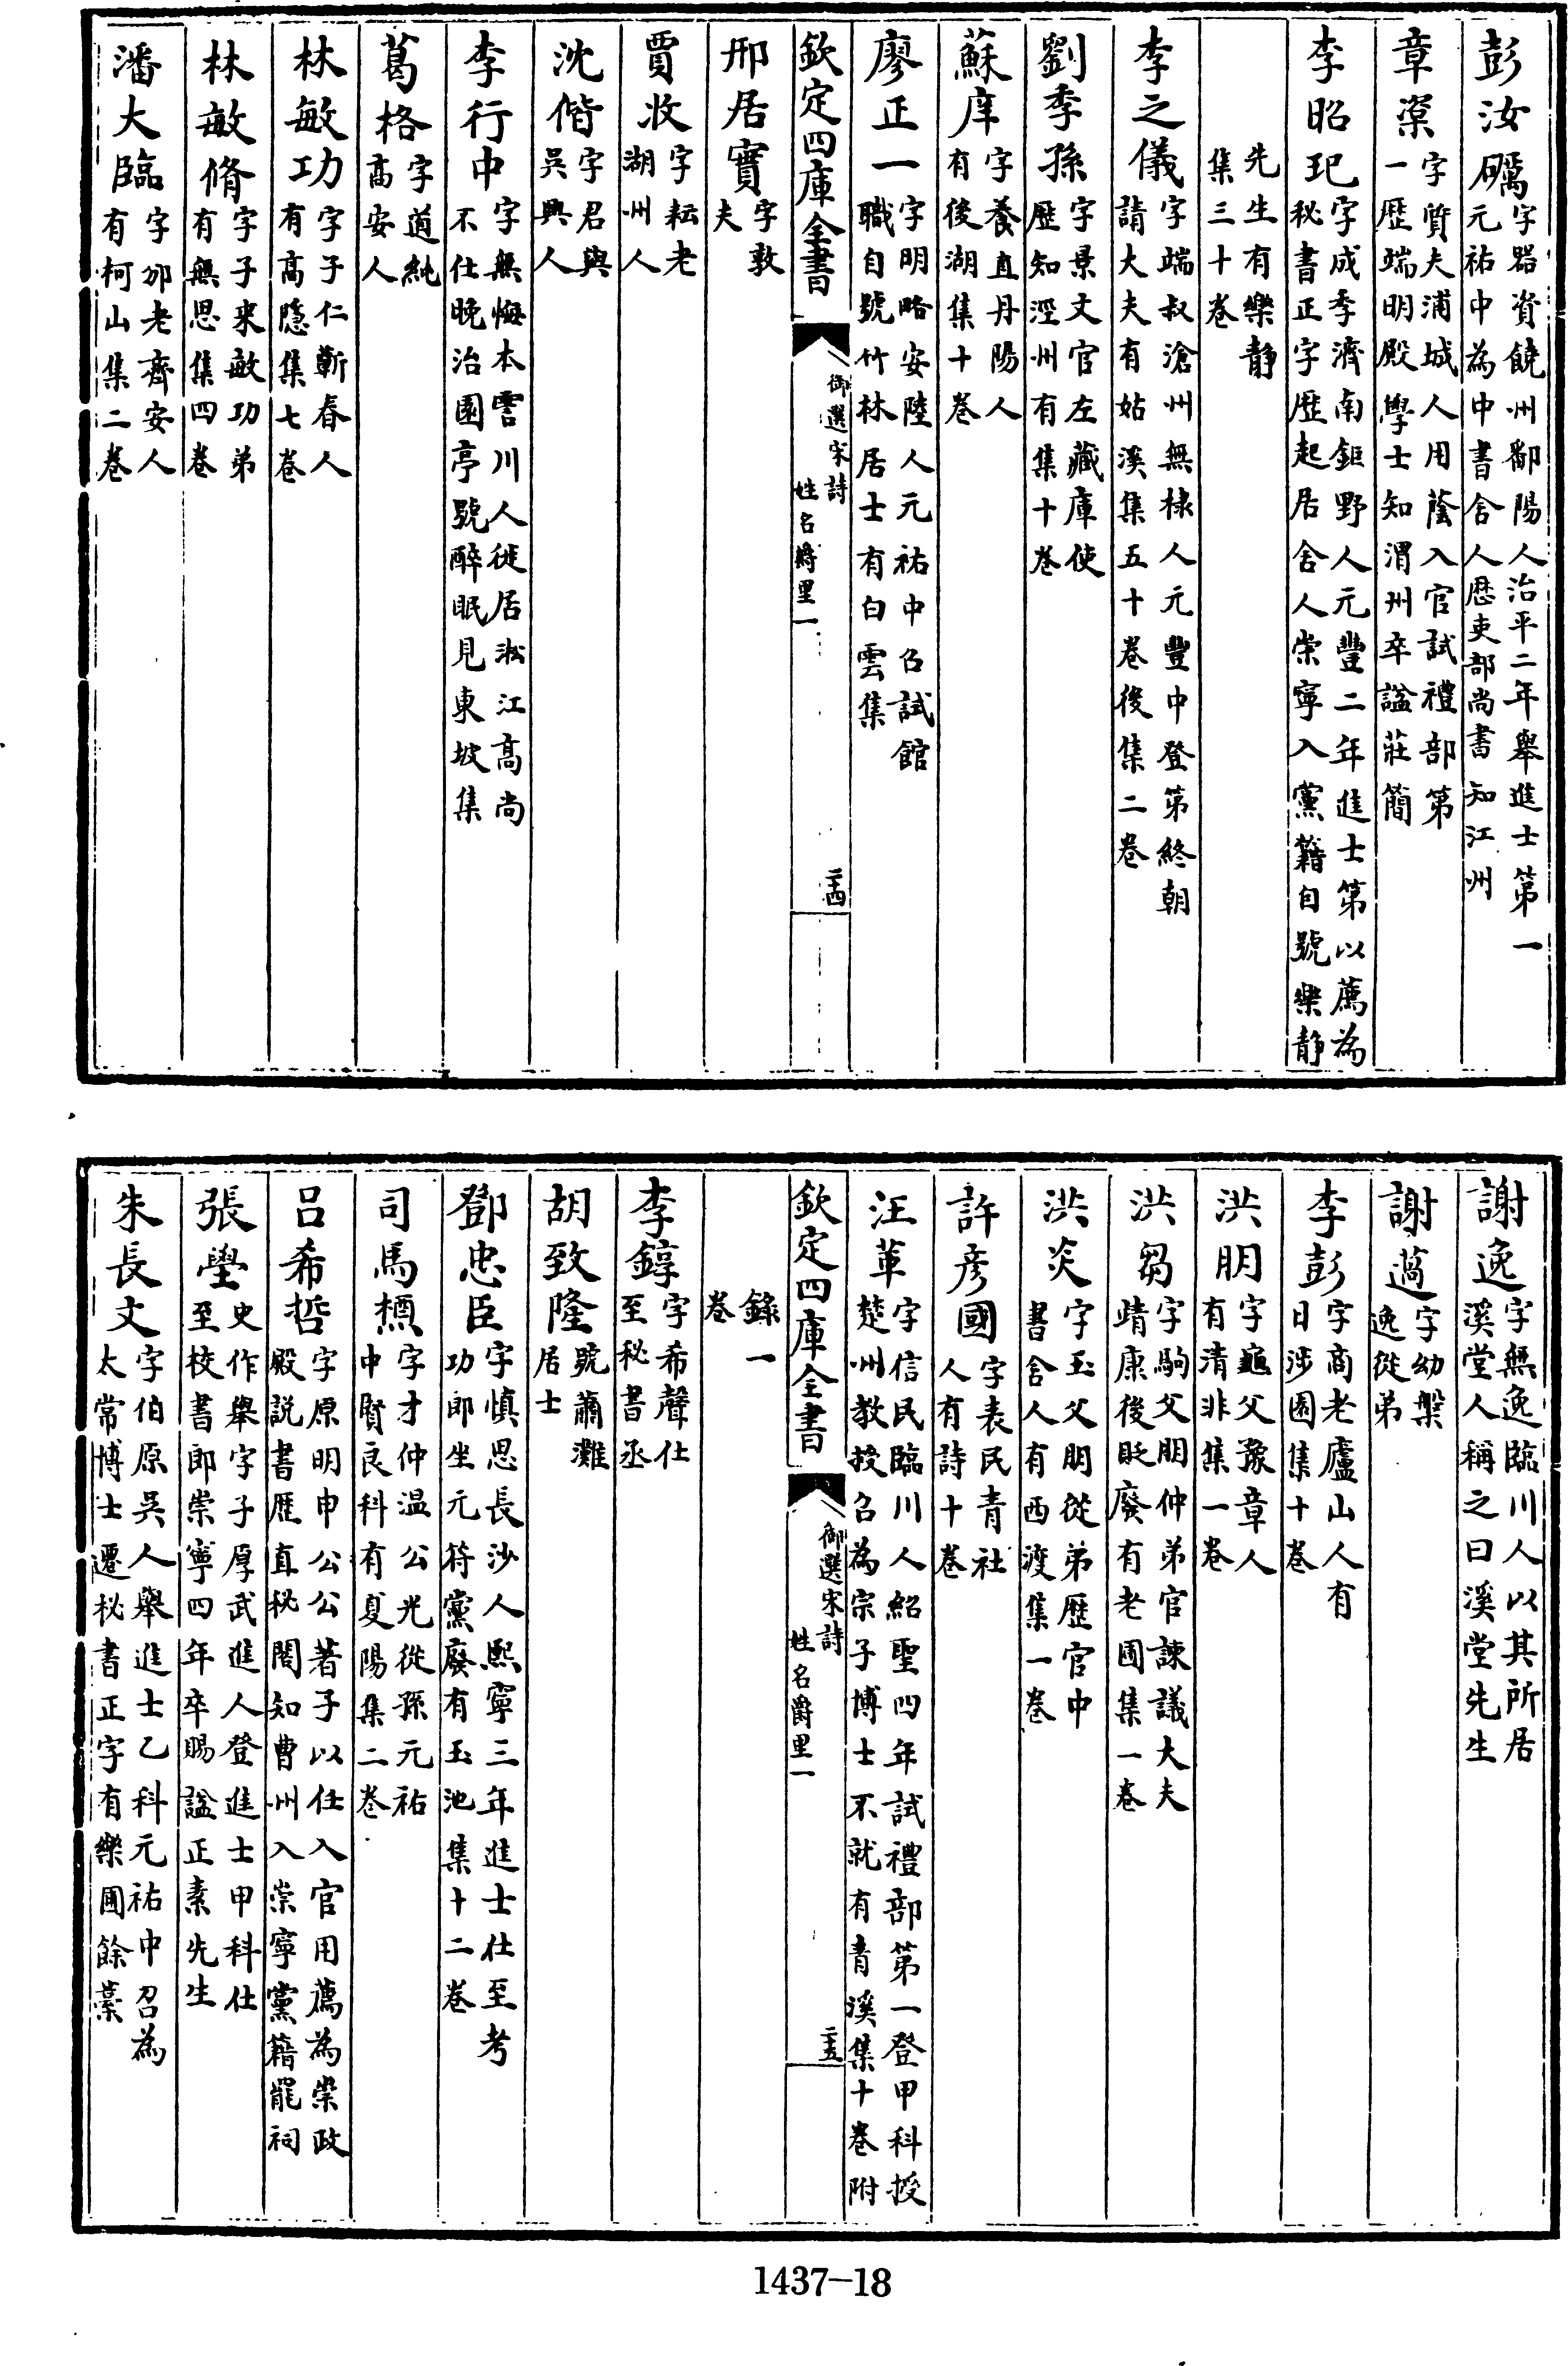 彭汝礪字器資饒州鄱陽人治平二年舉進士第一
元祐中為中書舍人歴吏部尚書知江州
章楶字質夫浦城人用蔭入官試禮部第
一歴端明殿學士知渭州卒諡莊簡
李昭玘字成季濟南鉅野人元豐二年進士第以薦為
秘書正字歴起居舍人崇寧入黨籍自號樂静
先生有樂静
集三十卷
李之儀字端叔滄州無棣人元豐中登第終朝
請大夫有姑溪集五十卷後集二卷
劉季孫字景文官左藏庫使
歴知涇州有集十卷
蘇庠字養直丹陽人
有後湖集十卷
廖正一字明略安陸人元祐中召試館
職自號竹林居士有白雲集
欽定四庫全書
御選宋詩
姓名爵里一
二十四
邢居實字敦
夫
賈收字耘老
湖州人
沈偕字君與
吳興人
李行中字無悔本霅川人徙居淞江高尚
不仕晚治園亭號醉眠見東坡集
葛格字道純
高安人
林敏功字子仁蘄春人
有高隱集七卷
林敏脩字子來敏功弟
有無思集四卷
潘大臨字邠老齊安人
有柯山集二卷
謝逸字無逸臨川人以其所居
溪堂人稱之曰溪堂先生
謝薖字幼槃
逸從弟
李彭字商老廬山人有
日涉園集十卷
洪朋字龜父豫章人
有清非集一卷
洪芻字駒父朋仲弟官諫議大夫
靖康後貶廢有老圃集一卷
洪炎字玉父朋從弟歴官中
書舍人有西渡集一卷
許彦國字表民青社
人有詩十卷
汪革字信民臨川人紹聖四年試禮部第一登甲科授
楚州教授召為宗子博士不就有青溪集十卷附
欽定四庫全書
御選宋詩
姓名爵里一
二十五
錄一
卷
李錞字希聲仕
至秘書丞
胡致隆號蕭灘
居士
鄧忠臣字慎思長沙人熙寧三年進士仕至考
功郎坐元符黨廢有玉池集十二卷
司馬槱字才仲温公光從孫元祐
中賢良科有夏陽集二卷
吕希哲字原明申公公著子以任入官用薦為崇政
殿説書歴直秘閣知曹州入崇寧黨籍罷祠
張舉史作舉字子厚武進人登進士甲科仕
至校書郎崇寧四年卒賜諡正素先生
朱長文字伯原吳人舉進士乙科元祐中召為
太常博士遷秘書正字有樂圃餘藁
1437-18